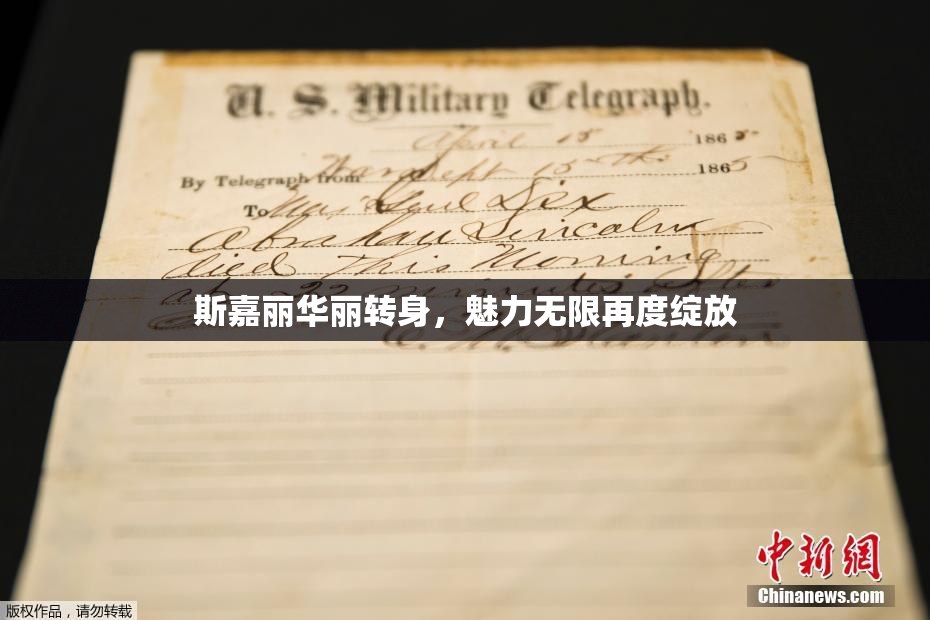 U. S. Military Telegraph.
April 15 1865
By Telegraph from War Dept 15th 1865
To Maj Genl Dix
Abraham Lincoln
died This Morning
at 22 minutes after
斯嘉丽华丽转身，魅力无限再度绽放
中新網
Chinanews.com
版权作品，请勿转载